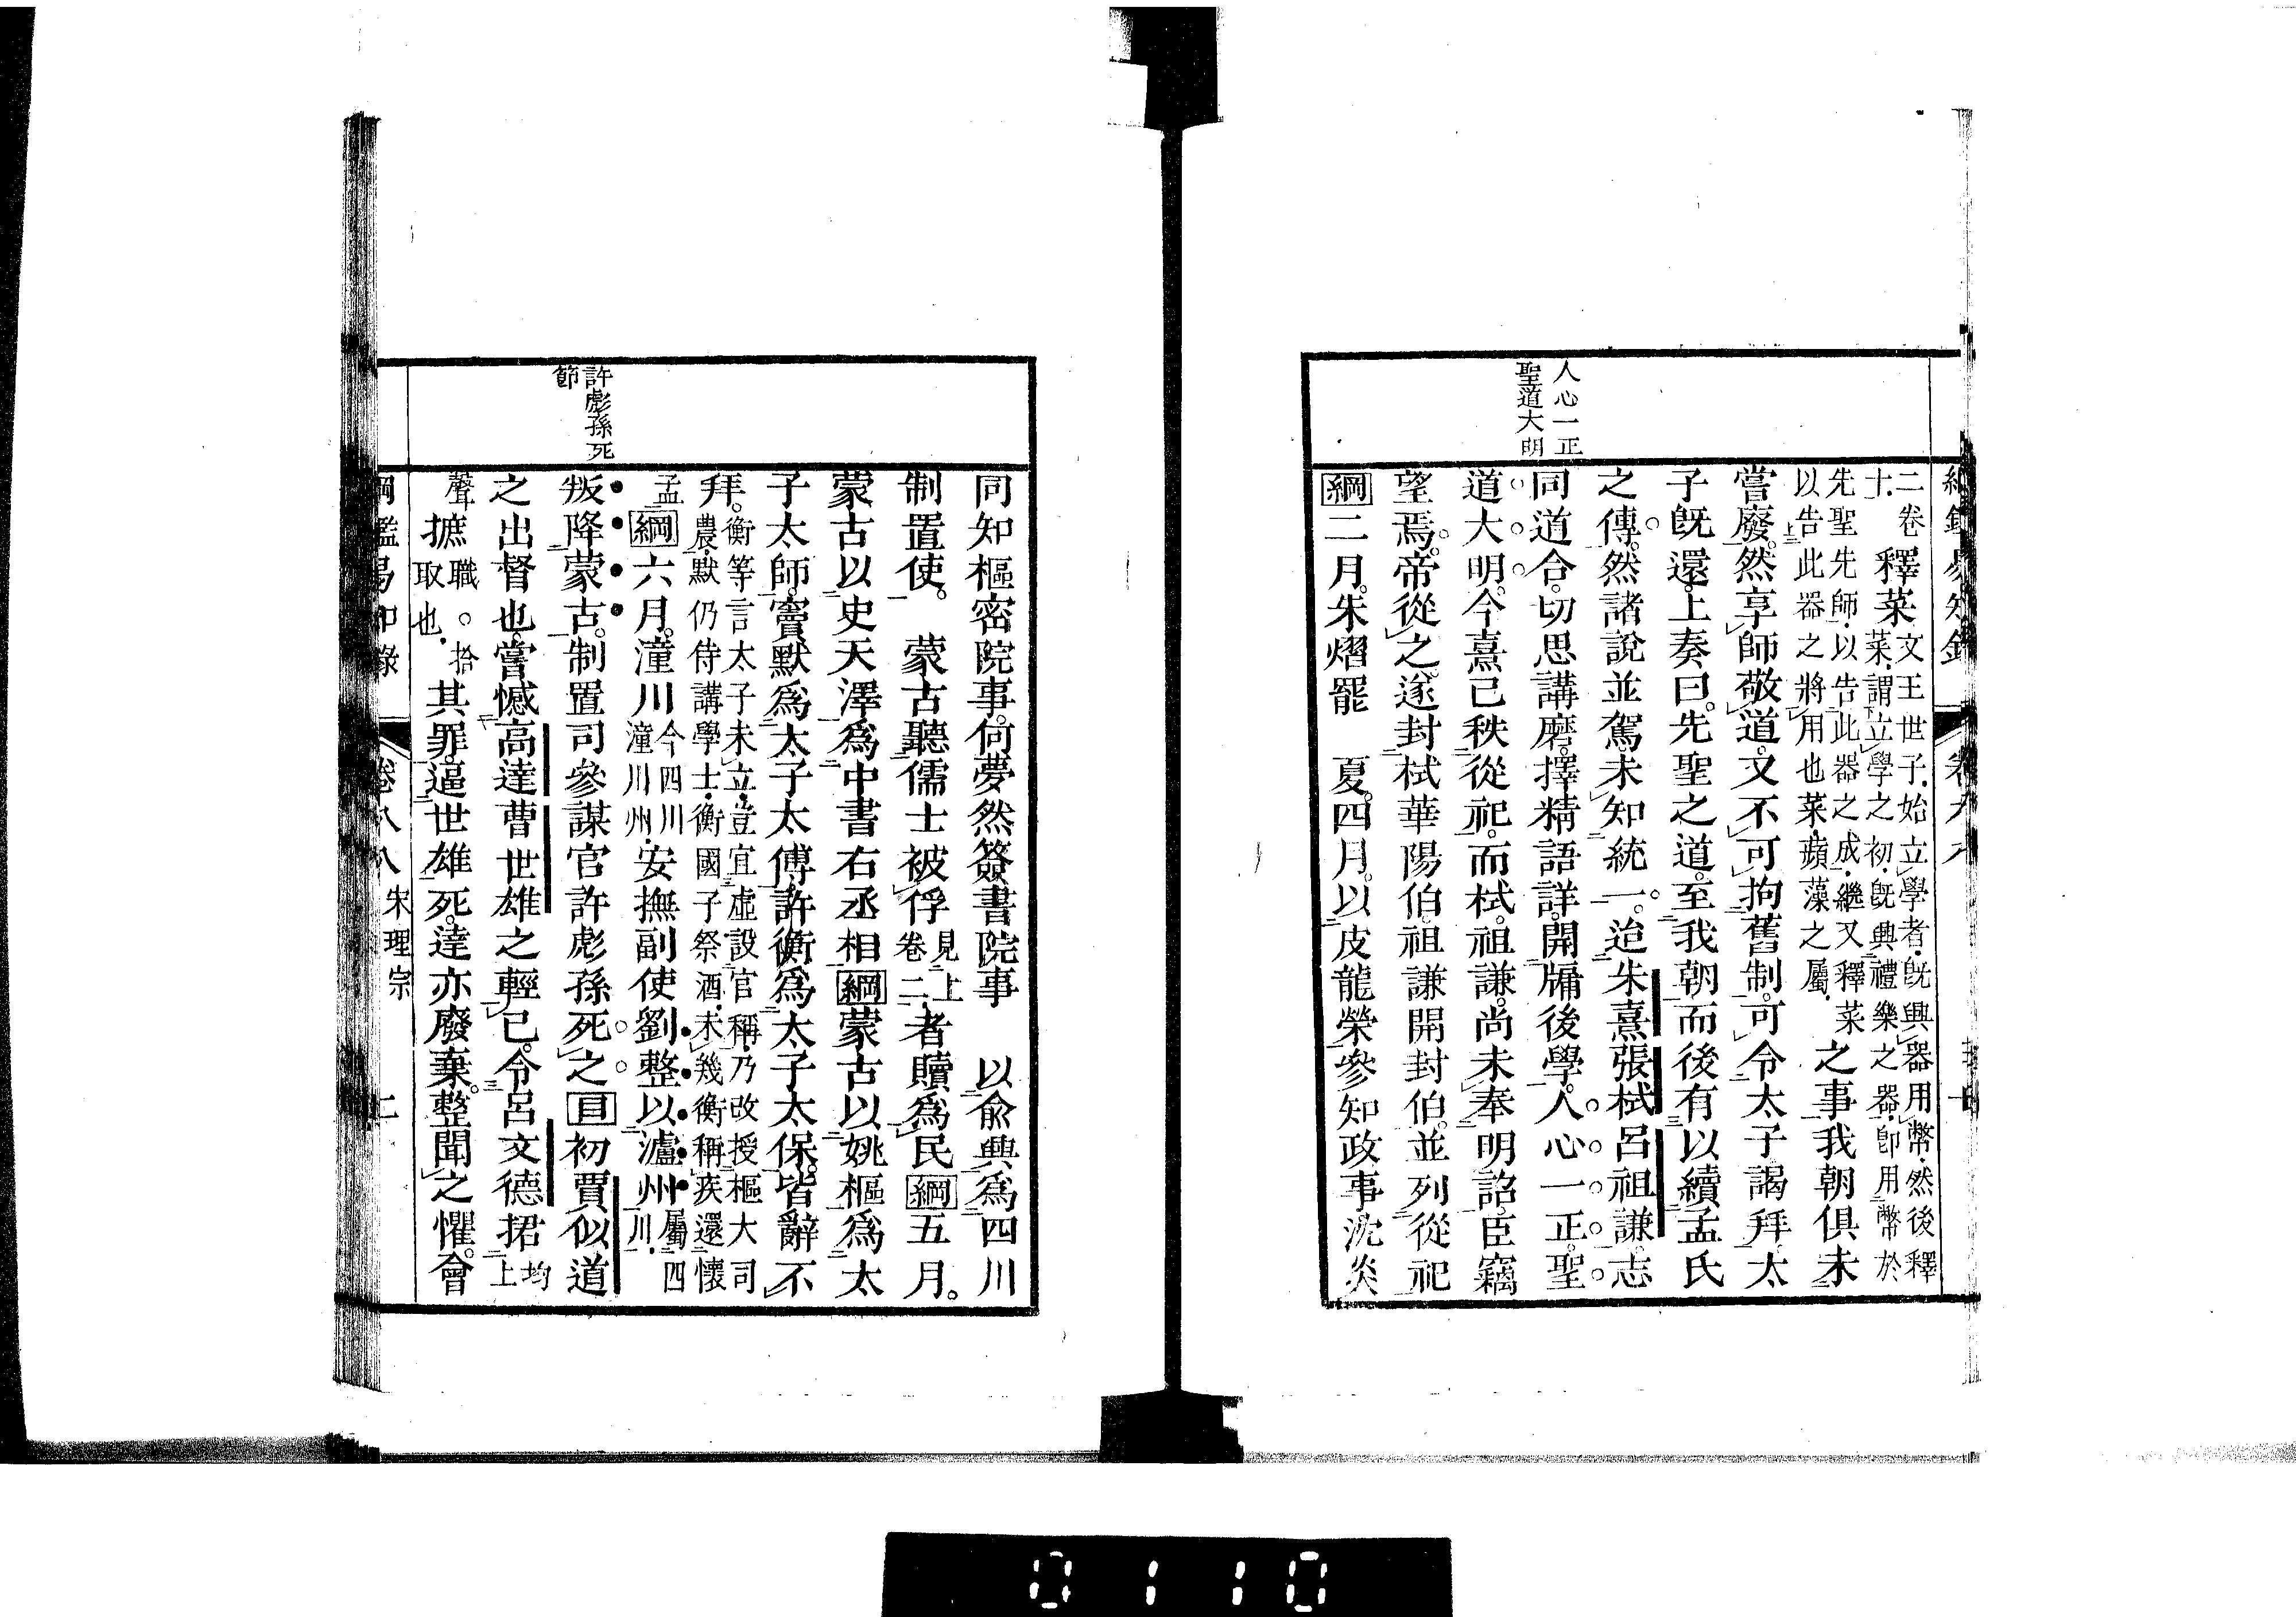 人心一正
聖道大明
二卷
十
釋菜
文王世子始立學者既興器用幣然後釋
菜謂立學之初既興禮樂之器即用幣於
先聖先師以告此器之成繼又釋菜
以告此器之將用也菜蘋藻之屬
之事我朝俱未
嘗廢然享師敬道又不可拘舊制可令太子謁拜太
子旣還上奏曰先聖之道至我朝而後有以續孟氏
之傳然諸說並駕未知統一迨朱熹張栻呂祖謙志
同道合切思講磨擇精語詳開牖後學人心一正聖
道大明今熹已秩從祀而栻祖謙尚未奉明詔臣竊
望焉帝從之遂封栻華陽伯祖謙開封伯並列從祀
綱二月朱熠罷　夏四月以皮龍榮參知政事沈炎
許彪孫死
節
同知樞密院事何夢然簽書院事　以俞興爲四川
制置使　蒙古聽儒士被俘見上卷二者贖爲民綱五月
蒙古以史天澤爲中書右丞相綱蒙古以姚樞爲太
子太師竇默爲太子太傅許衡爲太子太保皆辭不
拜
衡等言太子未立豈宜虛設官稱乃改授樞大司
農默仍侍講學士衡國子祭酒未幾衡稱疾還懷
孟
綱六月潼川今四川潼川州安撫副使劉整以瀘州屬四川
叛降蒙古制置司參謀官許彪孫死之目初賈似道
之出督也嘗憾高達曹世雄之輕已令呂文德捃均上
聲摭職。拾取也其罪逼世雄死達亦廢棄整聞之懼會
綱鑑易知錄　卷八八　宋理宗
0110